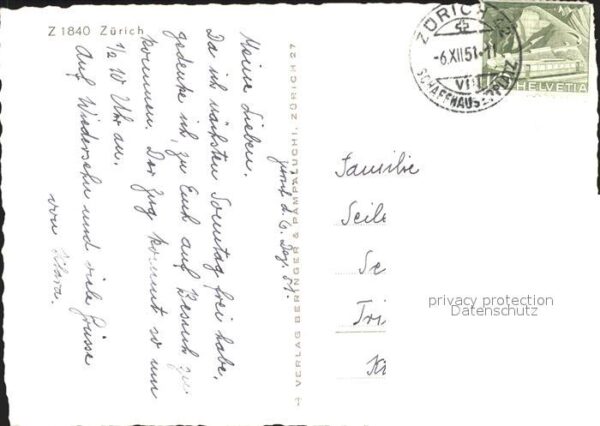 Z 1840 Zürich
Zürich d. 6. Dez. 51.
Meine Lieben.
Da ich nächsten Sonntag frei habe,
gedenke ich, zu Euch auf Besuch zu
kommen. Der Zug kommt so um
½ 10 Uhr an.
Auf Wiedersehn und viele Grüsse
von
VERLAG BERINGER & PAMPALUCHI, ZÜRICH 27
ZÜRICH 22
-6.XII.51.-11
VIII
SCHAFFHAUS.PLATZ
HELVETIA
Familie
Seile
Se
Tri
privacy protection
Datenschutz